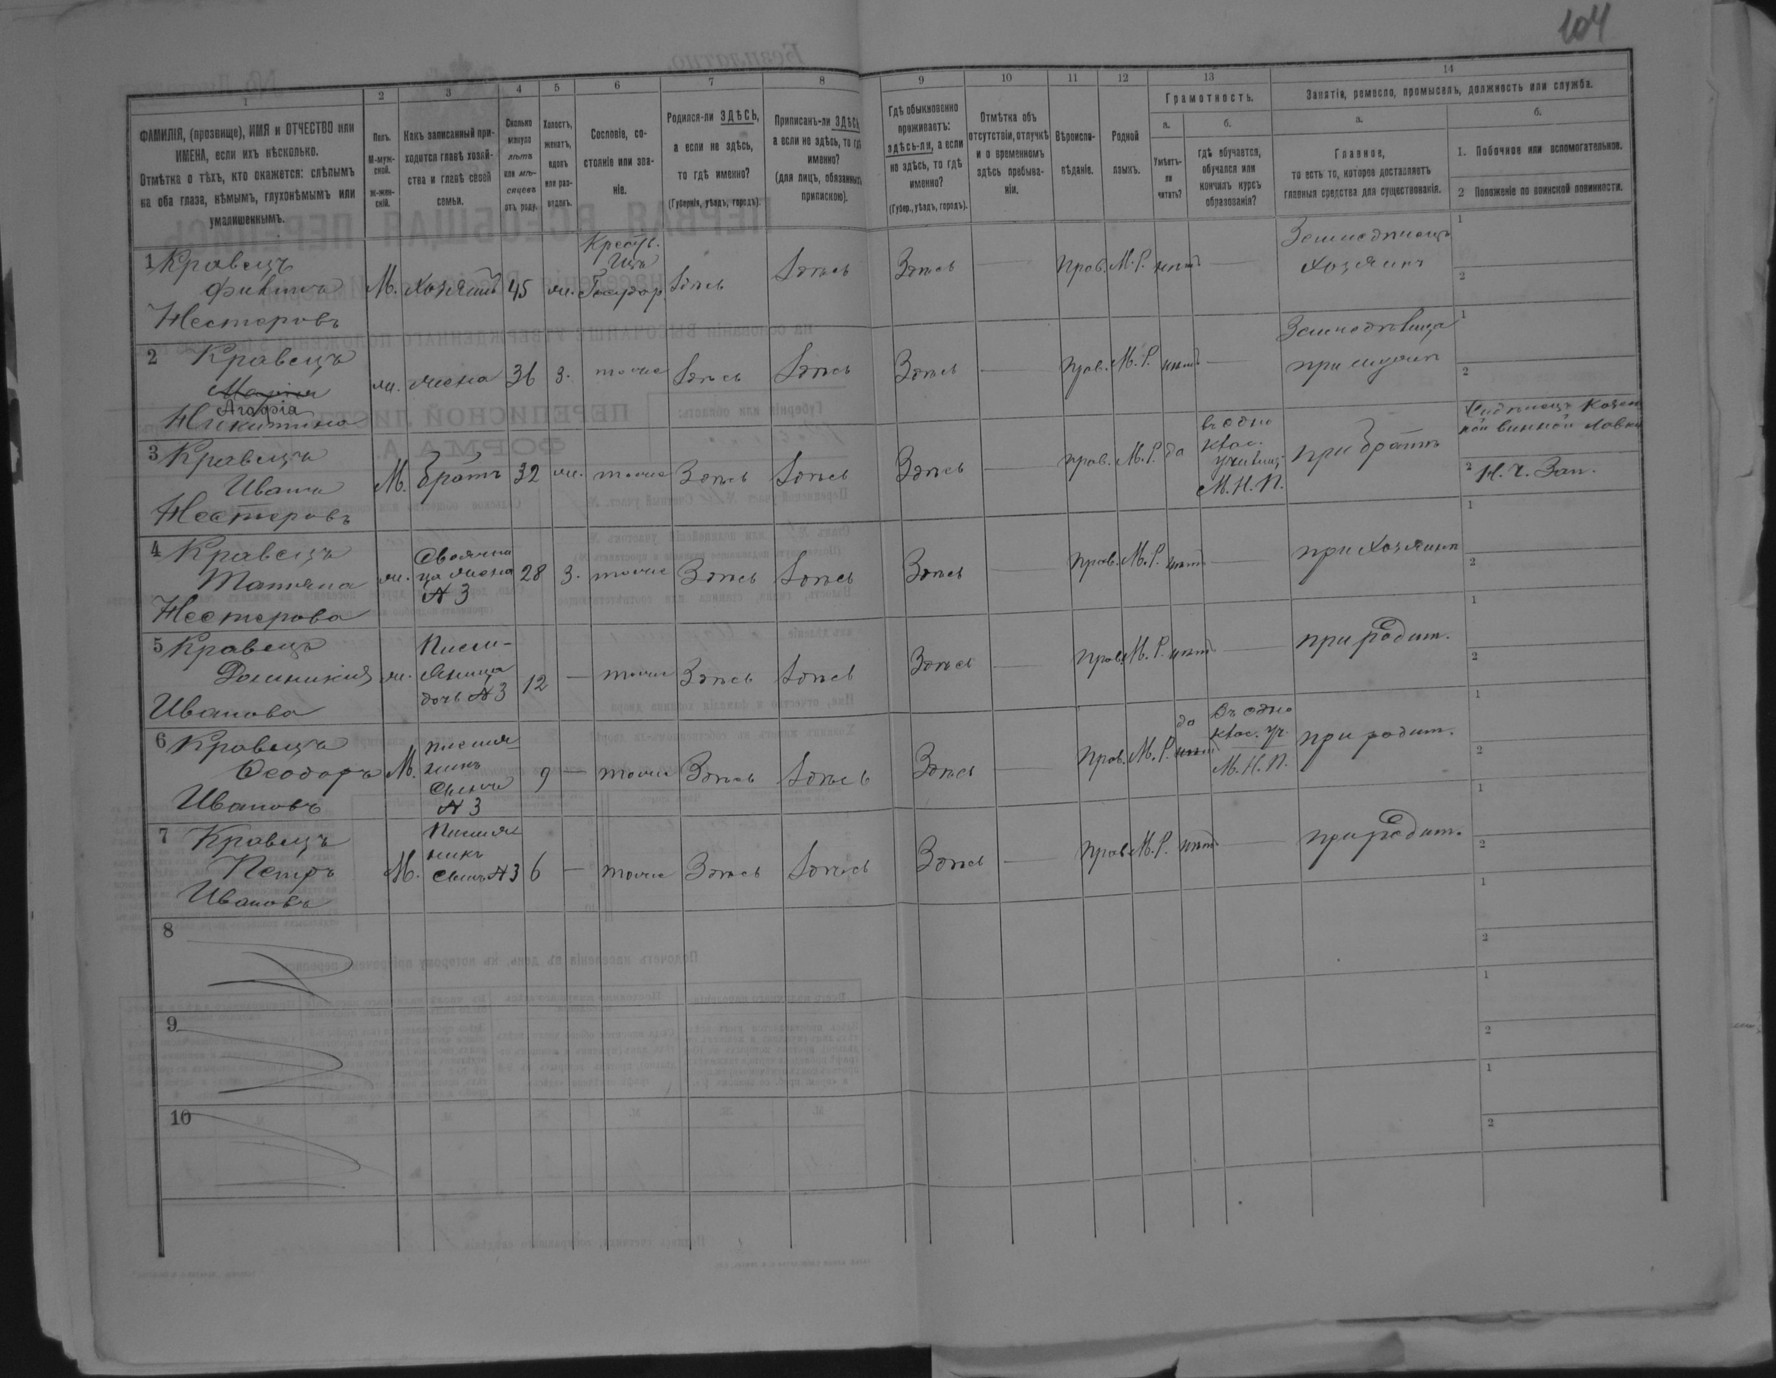 104
1
ФАМИЛІЯ, (прозвище), ИМЯ и ОТЧЕСТВО или
ИМЕНА, если ихъ нѣсколько.
Отмѣтка о тѣхъ, кто окажется: слѣпымъ
на оба глаза, нѣмымъ, глухонѣмымъ или
умалишеннымъ.
2
Полъ.
М-мужской.
Ж-женскій.
3
Какъ записанный при-
ходится главѣ хозяй-
ства и главѣ своей
семьи.
4
Сколько
минуло
лѣтъ
или мѣ-
сяцевъ
отъ роду.
5
Холостъ,
женатъ,
вдовъ
или раз-
веденъ.
6
Сословіе, со-
стояніе или зва-
ніе.
7
Родился-ли ЗДѢСЬ,
а если не здѣсь,
то гдѣ именно?
(Губернія, уѣздъ, городъ).
8
Приписанъ-ли ЗДѢСЬ,
а если не здѣсь, то гдѣ
именно?
(для лицъ, обязанныхъ
припискою).
9
Гдѣ обыкновенно
проживаетъ:
здѣсь-ли, а если
не здѣсь, то гдѣ
именно?
(Губер., уѣздъ, городъ).
10
Отмѣтка объ
отсутствіи, отлучкѣ
и о временномъ
здѣсь пребыва-
ніи.
11
Вѣроиспо-
вѣданіе.
12
Родной
языкъ.
13
Грамотность.
а.
Умѣетъ-
ли
читать?
б.
гдѣ обучается,
обучался или
кончилъ курсъ
образованія?
14
Занятія, ремесло, промыселъ, должность или служба.
а.
Главное,
то есть то, которое доставляетъ
главныя средства для существованія.
б.
1. Побочное или вспомогательное.
2 Положеніе по воинской повинности.
1 Кравецъ
Никита
Нестеровъ
М. хозяинъ 45 ж. Крестья. Здѣсь Здѣсь Здѣсь — Прав. М.Р. нѣтъ —
Земледѣлецъ
хозяинъ
1
2
2 Кравецъ
Агафія
Никитина
ж. жена 36 з. тоже Здѣсь Здѣсь Здѣсь — Прав. М.Р. нѣтъ —
при мужѣ
1
2
3 Кравецъ
Иванъ
Нестеровъ
М. братъ 32 ж. тоже Здѣсь Здѣсь Здѣсь — Прав. М.Р. да
въ одно
клас.
училищ.
М.Н.П.
при братѣ
2 Н.Ч. Зап.
4 Кравецъ
Татьяна
Нестерова
ж. Своячни
ца жена
№ 3
28 з. тоже Здѣсь Здѣсь Здѣсь — Прав. М.Р. нѣтъ —
при хозяинѣ
1
2
5 Кравецъ
Домникия
Иванова
ж. Племя-
нница
дочь № 3
12 — тоже Здѣсь Здѣсь Здѣсь — Прав. М.Р. нѣтъ —
при родит.
1
2
6 Кравецъ
Ѳеодоръ
Ивановъ
М. племя-
никъ
сынъ
№ 3
9 — тоже Здѣсь Здѣсь Здѣсь — Прав. М.Р. да нѣтъ
Въ одно
клас. уч.
М.Н.П.
при родит.
1
2
7 Кравецъ
Петръ
Ивановъ
М. Племя
никъ
сынъ № 3
6 — тоже Здѣсь Здѣсь Здѣсь — Прав. М.Р. нѣтъ —
при родит.
1
2
8
1
2
9
1
2
10
1
2